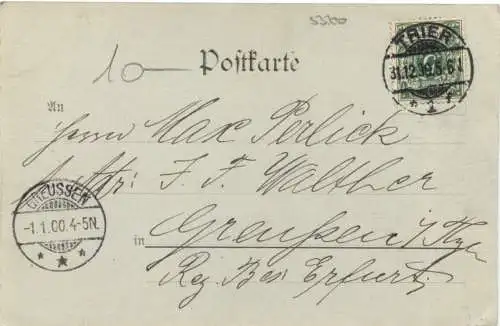 53300
TRIER
31.12.99.5-6N
* 1 f
10
Postkarte
An
Herrn Max Perlick
Adr: J. F. Walther
GREUSSEN
-1.1.00.4-5N.
* * *
in Greußen i/Thgen
Reg. Bez. Erfurt.